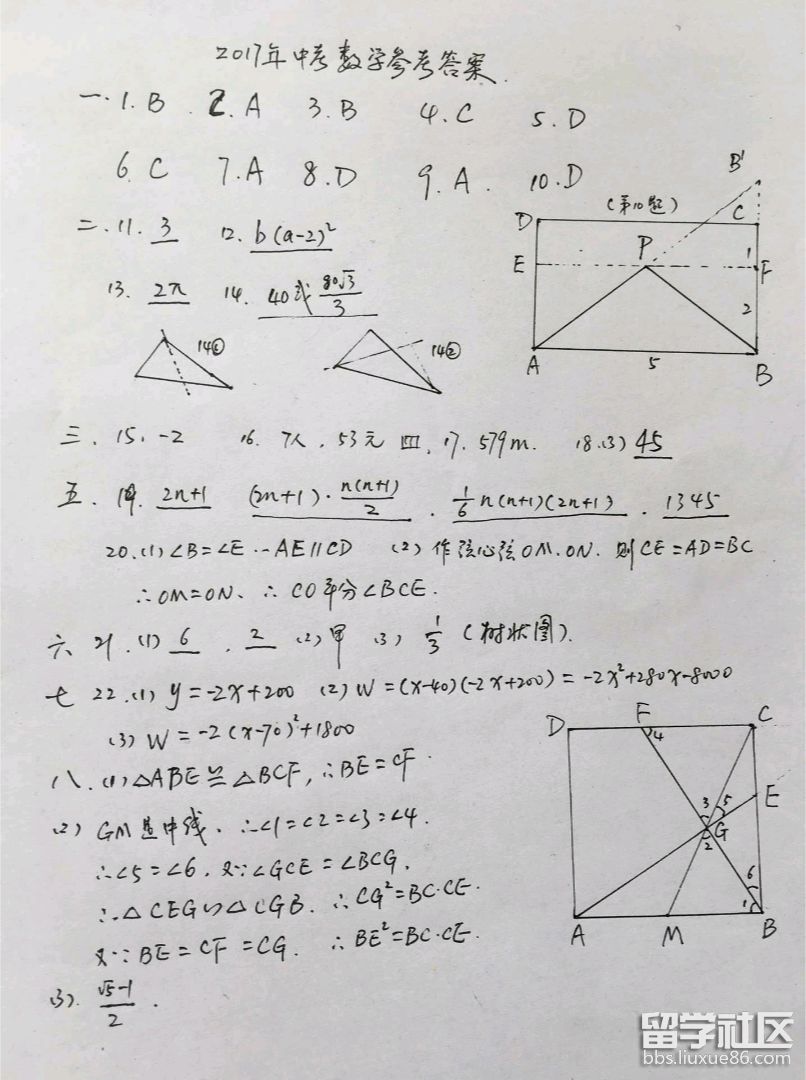 2017年中考数学参考答案.
一.1.B 2.A 3.B 4.C 5.D
6.C 7.A 8.D 9.A. 10.D
(第10题)
B'
D C
E P F
1
2
A 5 B
二.11. 3 12. b(a-2)²
13. 2π 14. 40或80√3/3
14① 14②
三. 15. -2 16. 7人, 53元 四. 17. 579m. 18.(3) 45
五. 19. 2n+1 (2n+1)·n(n+1)/2 . 1/6 n(n+1)(2n+1) . 1345
20.(1) ∠B=∠E … AE∥CD (2) 作弦心弦OM.ON. 则CE=AD=BC
∴OM=ON、∴ CO平分∠BCE.
六 21.(1) 6 . 2 (2) 甲 (3) 1/3 (树状图).
七 22.(1) y=-2x+200 (2) W=(x-40)(-2x+200)=-2x²+280x-8000
(3) W=-2(x-70)²+1800
八.(1) △ABE≌△BCF, ∴BE=CF.
(2) GM是中线. ∴∠1=∠2=∠3=∠4.
∴∠5=∠6. 又∵∠GCE=∠BCG,
∴△CEG∽△CGB. ∴CG²=BC·CE.
又∵BE=CF=CG. ∴BE²=BC·CE.
(3). √5-1/2 .
D F C
4
E
3 5
G
2
6
1
A M B
留学社区
bbs.liuxue86.com